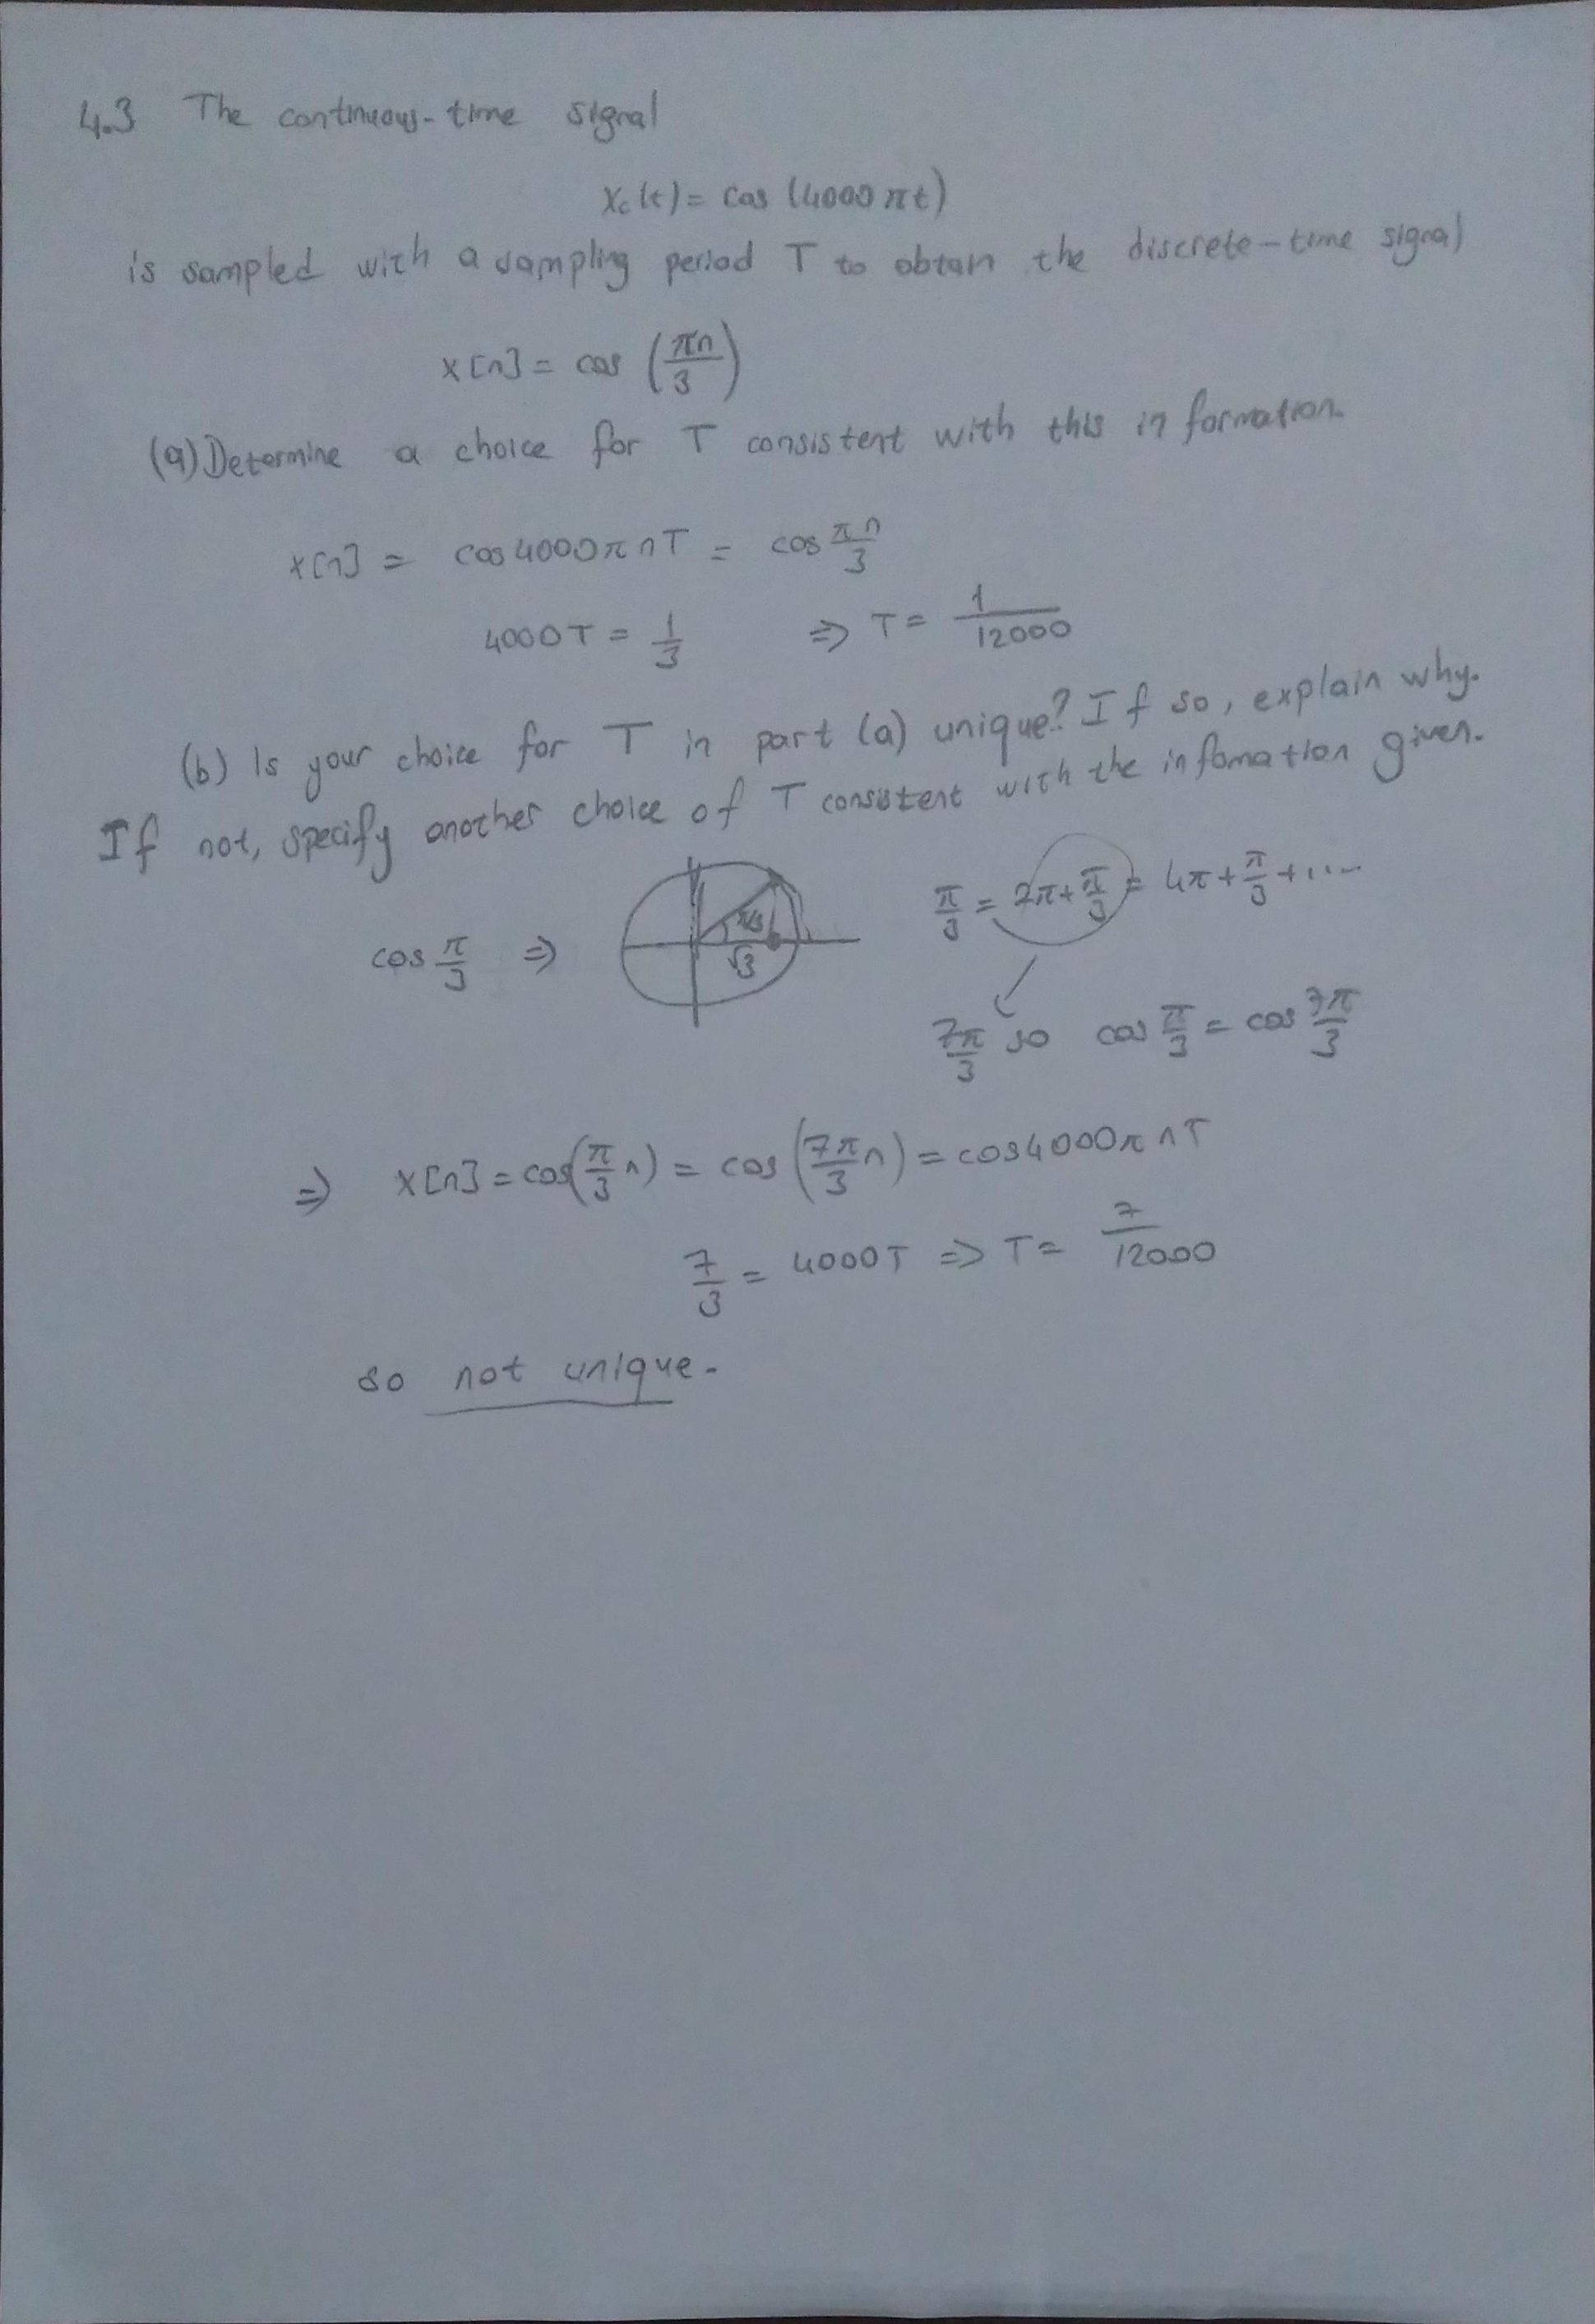 4.3 The continuous-time signal
Xc(t) = cos (4000πt)
is sampled with a sampling period T to obtain the discrete-time signal
x[n] = cos (πn/3)
(a) Determine a choice for T consistent with this information.
x[n] = cos4000πnT = cos πn/3
4000T = 1/3 ⇒ T = 1/12000
(b) Is your choice for T in part (a) unique? If so, explain why.
If not, specify another choice of T consistent with the infomation given.
cos π/3 ⇒ π/3 √3 π/3 = 2π+π/3 = 4π+π/3+....
7π/3 so cos π/3 = cos 7π/3
⇒ x[n] = cos(π/3 n) = cos (7π/3 n) = cos4000πnT
7/3 = 4000T ⇒ T = 7/12000
so not unique.